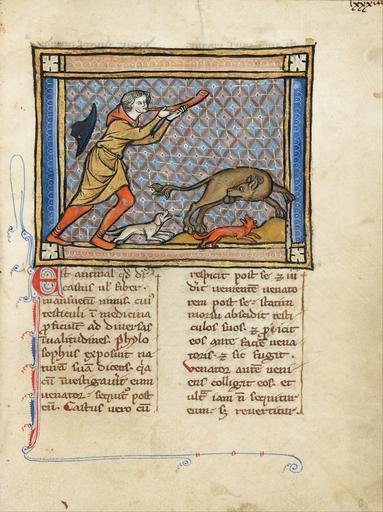 lxxxiii
Est animal qd dr
castus ul fiber.
mansuetum nimis. cui9
testiculi in medicina
proficiunt ad diversas
valitudines. Phylo
sophus exposuit na
turam suam dicens. qa
cum investigaverit eum
venator. sequitur post
eum. Castus vero cum
respicit post se & vi
dit venientem venato
rem post se. statim
morsu abscidit testi
culos suos. & proicit
eos ante faciem vena
toris. & sic fugit.
Venator autem veni
ens colligit eos. et
ultra iam non sequitur
eum. sed revertitur